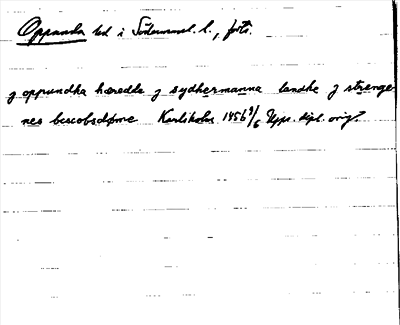 Oppunda hd i Södermanl. l., forts.
j oppundha hæredhe j sydhermanna landhe j strenge
nes bescobsdøme Karlsholm 1456 9/6 Upps. dipl. orig.